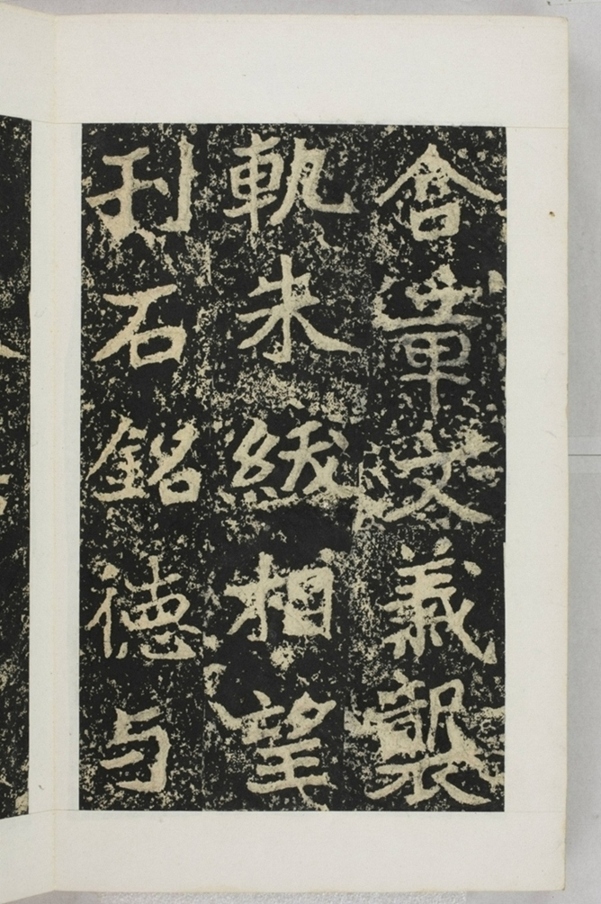 含章文義襲
軌朱紱相望
刊石銘德与